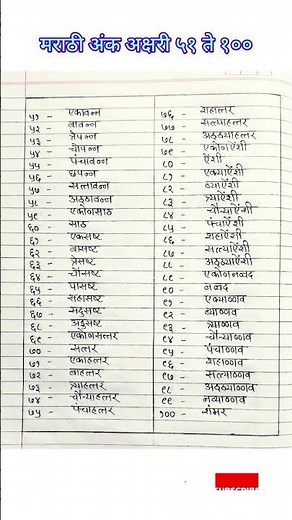 मराठी अंक अक्षरी ५१ ते १००
५१ - एकावन्न
५२ - बावन्न
५३ - त्रेपन्न
५४ - चोपन्न
५५ - पंचावन्न
५६ - छपन्न
५७ - सत्तावन्न
५८ - अठ्ठावन्न
५९ - एकोणसाठ
६० - साठ
६१ - एकसष्ट
६२ - बासष्ट
६३ - त्रेसष्ट
६४ - चौसष्ट
६५ - पासष्ट
६६ - सहासष्ट
६७ - सदुसष्ट
६८ - अडुसष्ट
६९ - एकोणसत्तर
७० - सत्तर
७१ - एकाहत्तर
७२ - बाहत्तर
७३ - त्र्याहत्तर
७४ - चौऱ्याहत्तर
७५ - पंचाहत्तर
७६ - शहात्तर
७७ - सत्याहत्तर
७८ - अठ्ठ्याहत्तर
७९ - एकोणऐंशी
८० - ऐंशी
८१ - एक्याऐंशी
८२ - ब्याऐंशी
८३ - त्र्याऐंशी
८४ - चौऱ्याऐंशी
८५ - पंचाऐंशी
८६ - शहाऐंशी
८७ - सत्याऐंशी
८८ - अठ्ठ्याऐंशी
८९ - एकोणनव्वद
९० - नव्वद
९१ - एक्याण्णव
९२ - ब्याण्णव
९३ - त्र्याण्णव
९४ - चौऱ्याण्णव
९५ - पंचाण्णव
९६ - शहाण्णव
९७ - सत्याण्णव
९८ - अठ्ठ्याण्णव
९९ - नव्याण्णव
१०० - शंभर